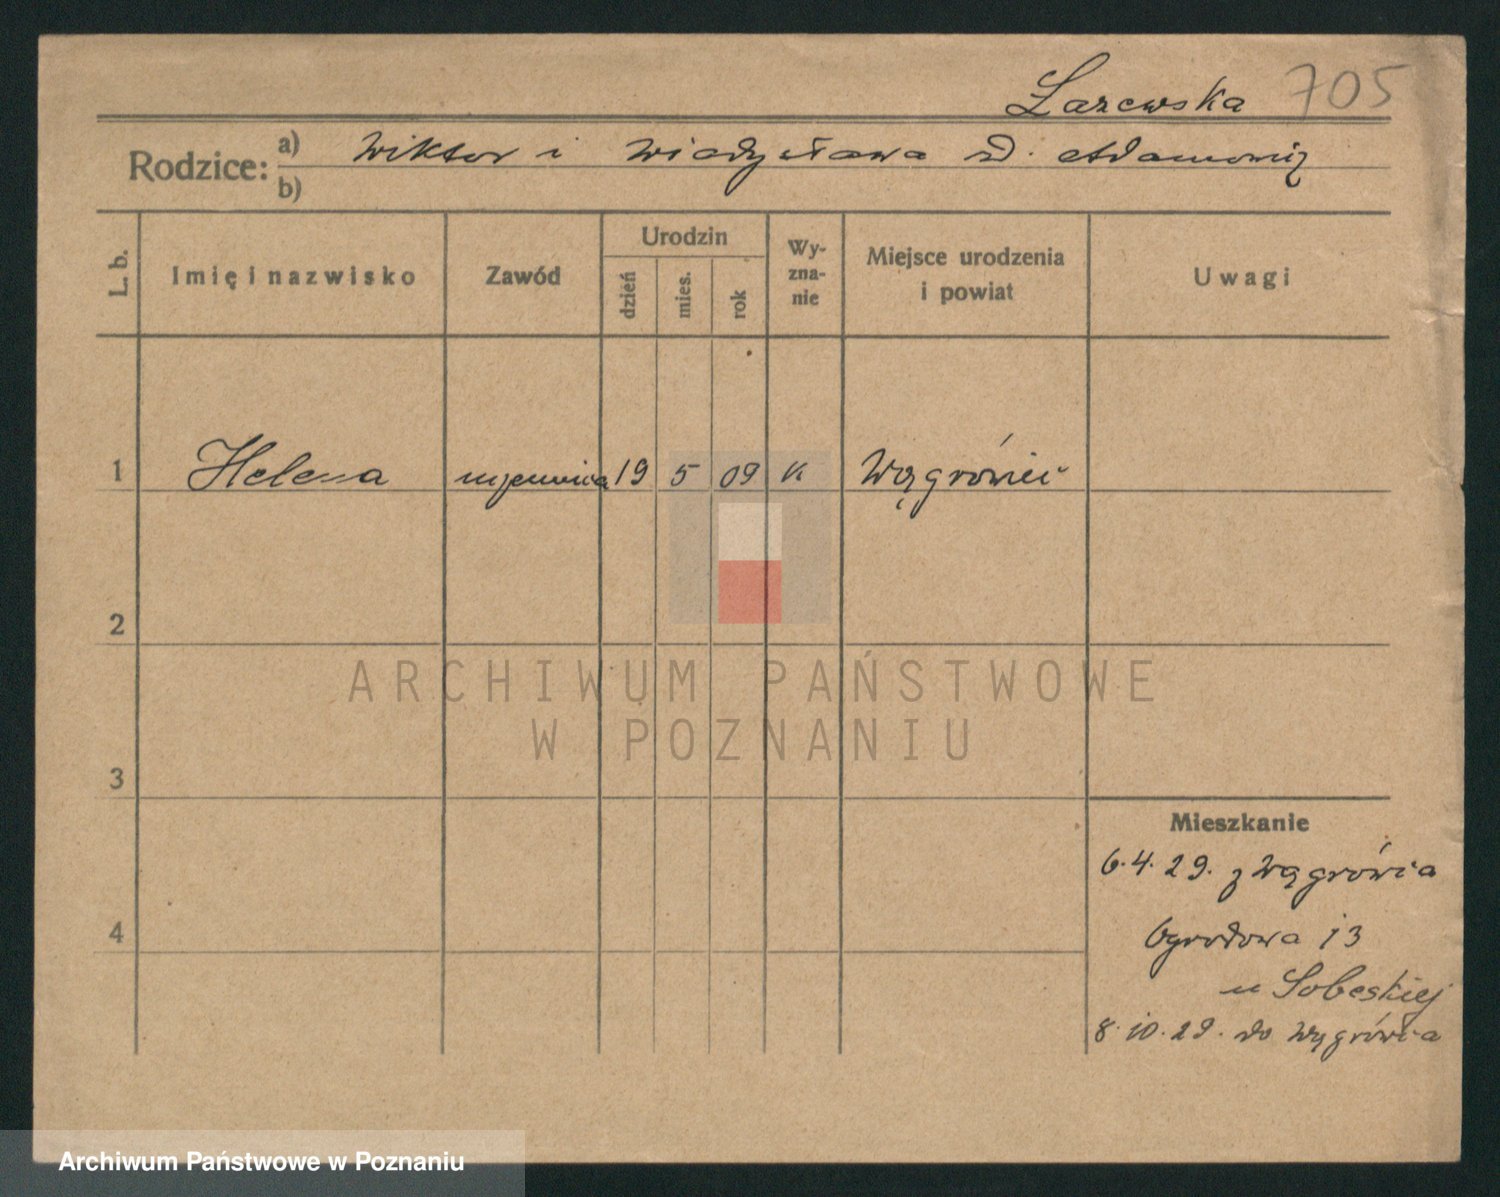 Łazewska 705
Rodzice: a) Wiktor i Władysława z d. Adamowicz
b)
L. b.
Imię i nazwisko
Zawód
Urodzin
dzień
mies.
rok
Wy-
zna-
nie
Miejsce urodzenia
i powiat
Uwagi
1 Helena 19 5 09 k Wągrówiec
2
3
4
Mieszkanie
6.4.29. z Wągrówca
Ogrodowa 13
u Sobeskiej
8.10.29. do Wągrówca
ARCHIWUM PAŃSTWOWE
W POZNANIU
Archiwum Państwowe w Poznaniu